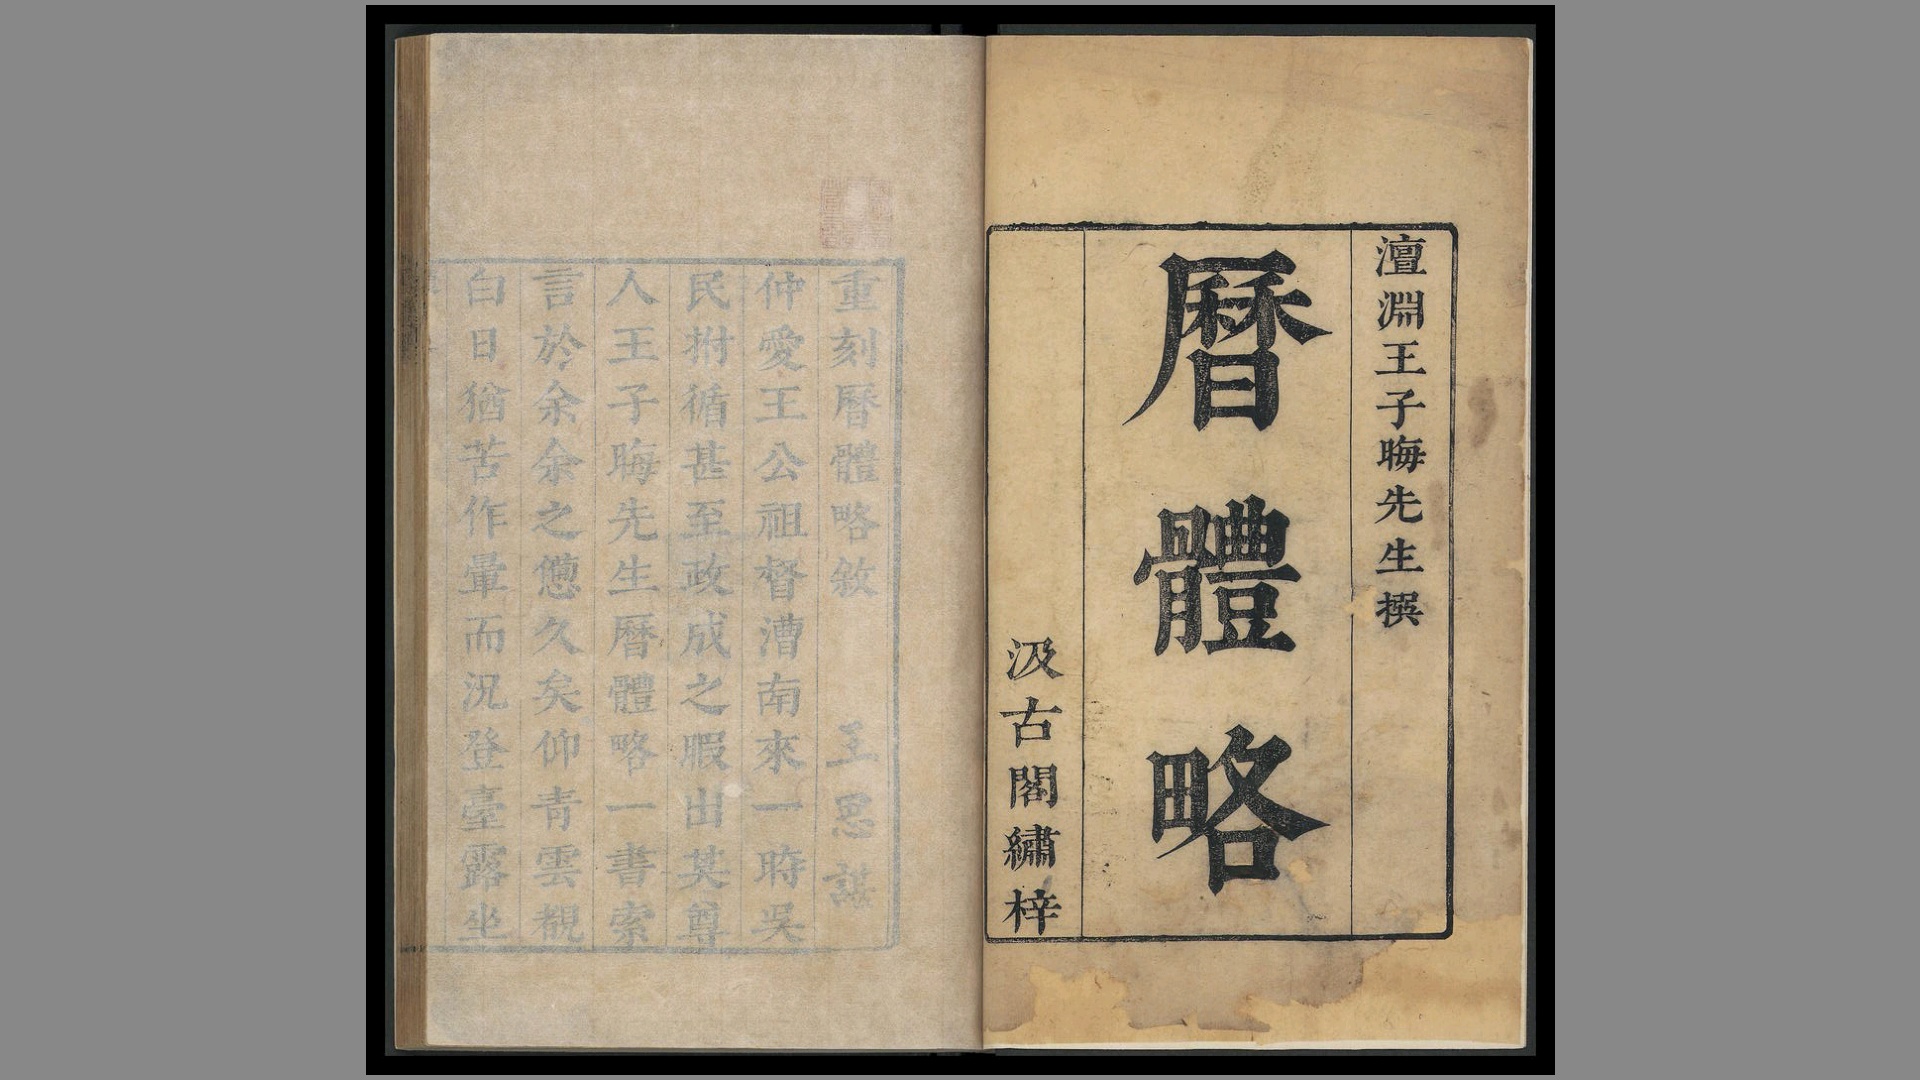 澶淵王子晦先生撰
曆體略
汲古閣繡梓
重刻曆體略敘 王思
仲愛王公祖督漕南來一時吳
民拊循甚至政成之暇出其尊
人王子晦先生曆體略一書索
言於余余之憊久矣仰青雲覩
白日猶苦作暈而況登臺露坐